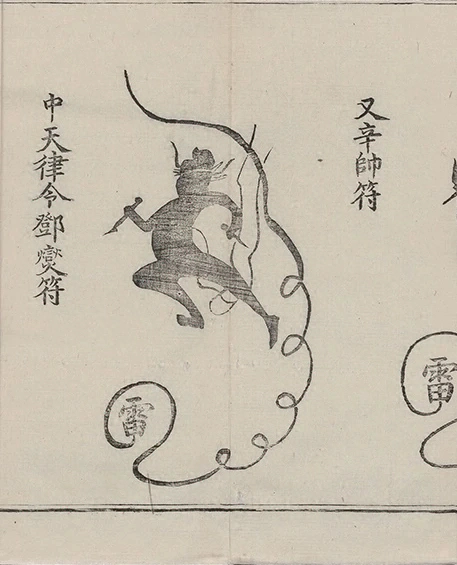 又辛帥符
雷
中天律令鄧燮符
雷